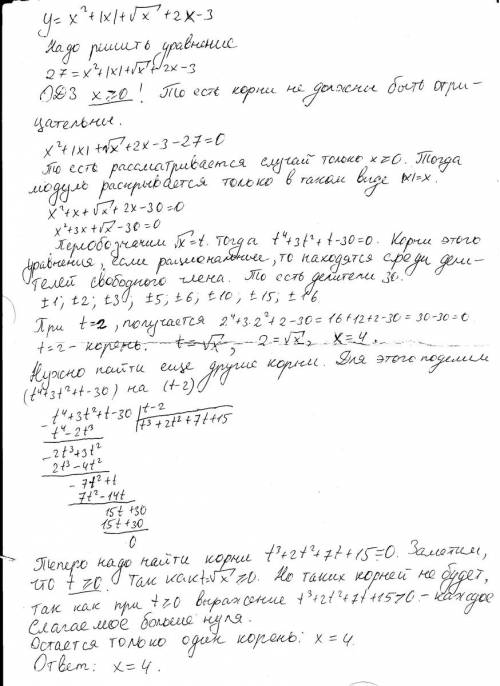 y = x² + |x| + √x + 2x - 3
Надо решить уравнение
27 = x² + |x| + √x + 2x - 3
ОДЗ x ≥ 0 ! То есть корни не должны быть отри-
цательны.
x² + |x| + √x + 2x - 3 - 27 = 0
То есть рассматривается случай только x ≥ 0. Тогда
модуль раскрывается только в таком виде |x| = x.
x² + x + √x + 2x - 30 = 0
x² + 3x + √x - 30 = 0
Переобозначим √x = t. Тогда t⁴ + 3t² + t - 30 = 0. Корни этого
уравнения, если рациональные, то находятся среди дели-
телей свободного члена. То есть делители 30.
±1; ±2; ±3; ±5; ±6; ±10; ±15; ±16
При t = 2, получается 2⁴ + 3·2² + 2 - 30 = 16 + 12 + 2 - 30 = 30 - 30 = 0
t = 2 - корень. t = √x, 2 = √x, x = 4.
Нужно найти еще другие корни. Для этого поделим
(t⁴ + 3t² + t - 30) на (t - 2)
t⁴ + 3t² + t - 30 | t - 2
t⁴ - 2t³ t³ + 2t² + 7t + 15
2t³ + 3t²
2t³ - 4t²
7t² + t
7t² - 14t
15t + 30
15t + 30
0
Теперь надо найти корни t³ + 2t² + 7t + 15 = 0. Заметим,
что t ≥ 0. Так как t = √x ≥ 0. Но таких корней не будет,
так как при t ≥ 0 выражение t³ + 2t² + 7t + 15 > 0 - каждое
слагаемое больше нуля.
Остается только один корень: x = 4
Ответ: x = 4.